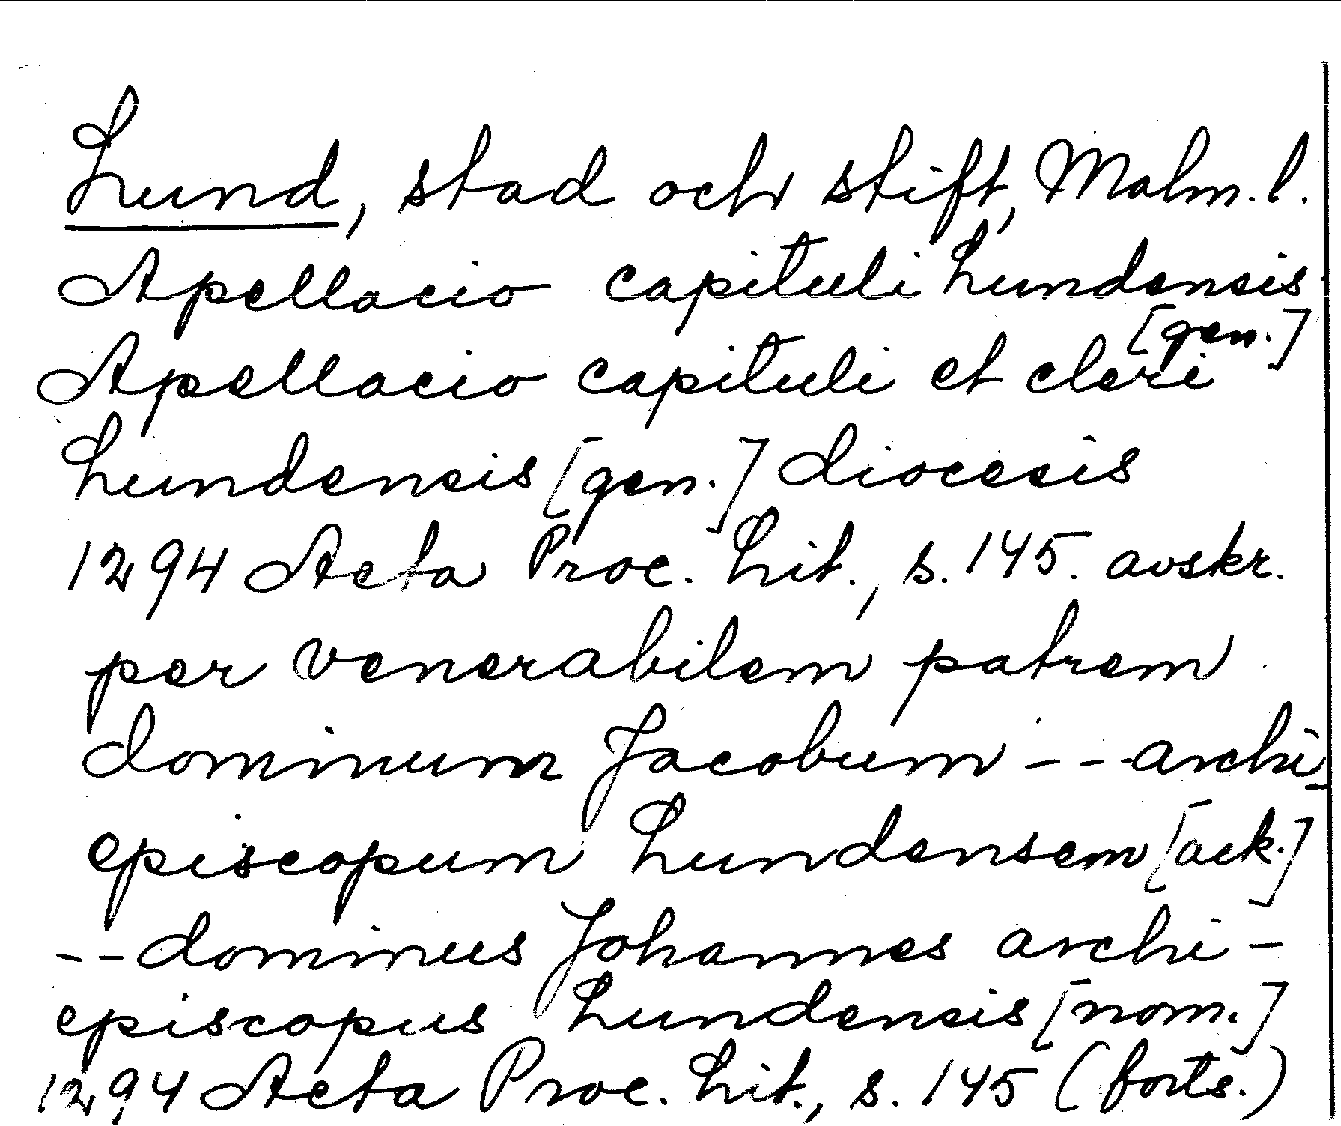 Lund, stad och stift, Malm. l.
Apellacio capituli Lundensis
[gen.]
Apellacio capituli et cleri
Lundensis [gen.] diocesis
1294 Acta Proc. Lit., s. 145. avskr.
per venerabilem patrem
dominum Jacobum -- archi-
episcopum Lundensem [ack.]
-- dominus Johannes archi-
episcopus Lundensis [nom.]
1294 Acta Proc. Lit., s. 145 (forts.)